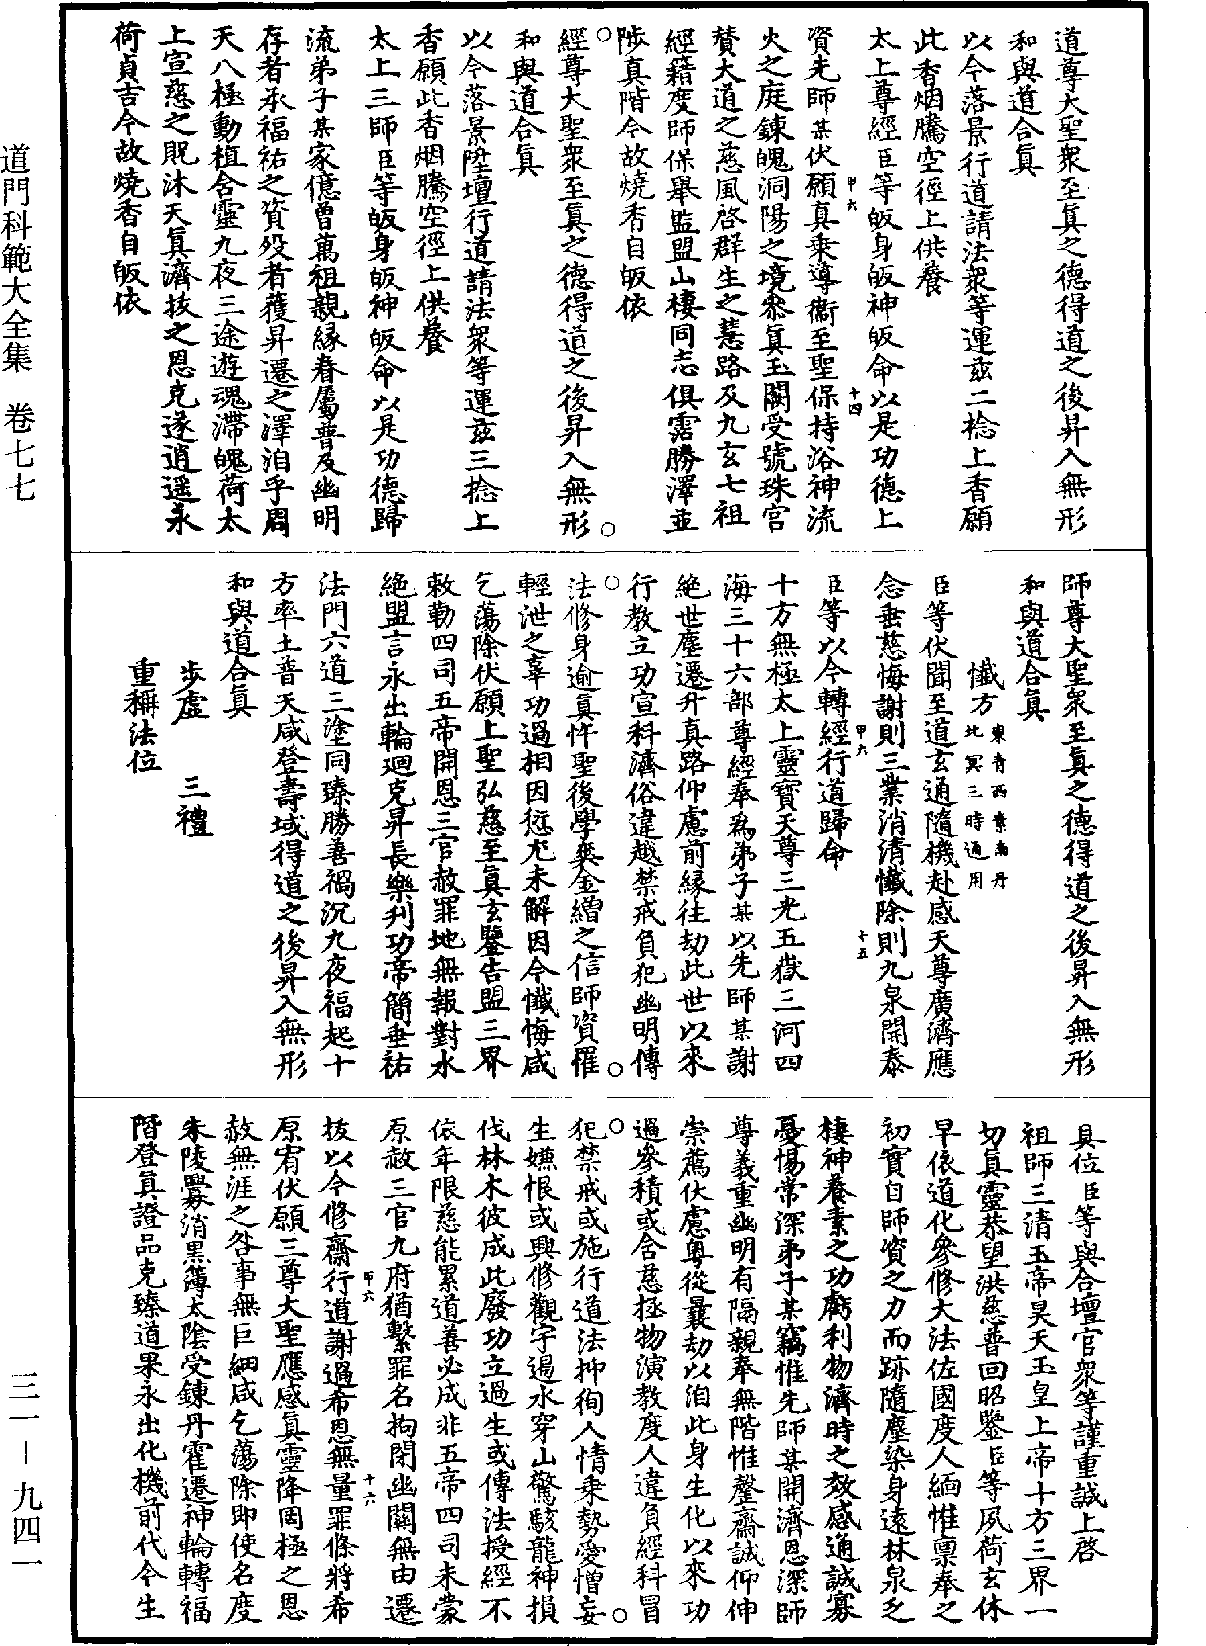 道尊大聖衆至真之德得道之後昇入無形
和與道合真
以今落景行道請法衆等運茲二捻上香願
此香烟騰空徑上供養
太上尊經臣等皈身皈神皈命以是功德上
資先師某伏願真乗導衞至聖保持浴神流
火之庭鍊魄洞陽之境叅真玉闕受號珠宮
賛大道之慈風啓群生之慧路及九玄七祖
經籍度師保舉監盟山棲同志俱霑勝澤並
陟真階今故燒香自皈依
經尊大聖衆至真之德得道之後昇入無形
和與道合真
以今落景陞壇行道請法衆等運茲三捻上
香願此香烟騰空徑上供養
太上三師臣等皈身皈神皈命以是功德歸
流弟子某家億曾萬祖親緣眷屬普及幽明
存者承福祐之資歿者獲昇遷之澤洎乎周
天八極動植含靈九夜三途遊魂滯魄荷太
上宣慈之貺沐天真濟拔之恩克遂逍遥永
荷貞吉今故燒香自皈依
甲六
十四
師尊大聖衆至真之德得道之後昇入無形
和與道合真
懺方 東青西素南丹北冥三時通用
臣等伏聞至道玄通隨機赴感天尊廣濟應
念垂慈悔謝則三業消清懺除則九泉開泰
甲六
十五
臣等以今轉經行道歸命
十方無極太上靈寶天尊三光五嶽三河四
海三十六部尊經奉為弟子某以先師某謝
絶世塵遷升真路仰慮前緣往劫此世以來
行教立功宣科濟俗違越禁戒負犯幽明傳
法修身逾真忤聖後學奕金繒之信師資罹
輕泄之辜功過相因愆尤未解因今懺悔咸
乞蕩除伏願上聖弘慈至真玄鑒告盟三界
敕勒四司五帝開恩三官赦罪地無報對水
絶盟言永出輪廻克昇長樂刋功帝簡垂祐
法門六道三塗同臻勝善禍沉九夜福起十
方率土普天咸登壽域得道之後昇入無形
和與道合真
步虛 三禮
重稱法位
具位臣等與合壇官衆等謹重誠上啓
祖師三清玉帝昊天玉皇上帝十方三界一
切真靈恭望洪慈普回昭鑒臣等夙荷玄休
早依道化參修大法佐國度人緬惟禀奉之
初實自師資之力而跡隨塵染身遠林泉乏
棲神養素之功虧利物濟時之效感通誠寡
憂惕常深弟子某竊惟先師某開濟恩深師
尊義重幽明有隔親奉無階惟罄齋誠仰伸
崇薦伏慮粤從曩劫以洎此身生化以來功
過參積或含慈拯物演教度人違負經科冒
犯禁戒或施行道法抑徇人情乗勢愛憎妄
生嫌恨或興修觀宇過水穿山驚駭龍神損
伐林木彼成此廢功立過生或傳法授經不
依年限慈能累道善必成非五帝四司未蒙
原赦三官九府猶繫罪名拘閉幽關無由遷
甲六
十六
拔以今修齋行道謝過希恩無量罪條將希
原宥伏願三尊大聖應感真靈降罔極之恩
赦無涯之咎事無巨細咸乞蕩除即使名度
朱陵釁消黒簿太隂受鍊丹霍遷神輪轉福
階登真證品克臻道果永出化機前代今生
道門科範大全集 卷七七
三一－九四一